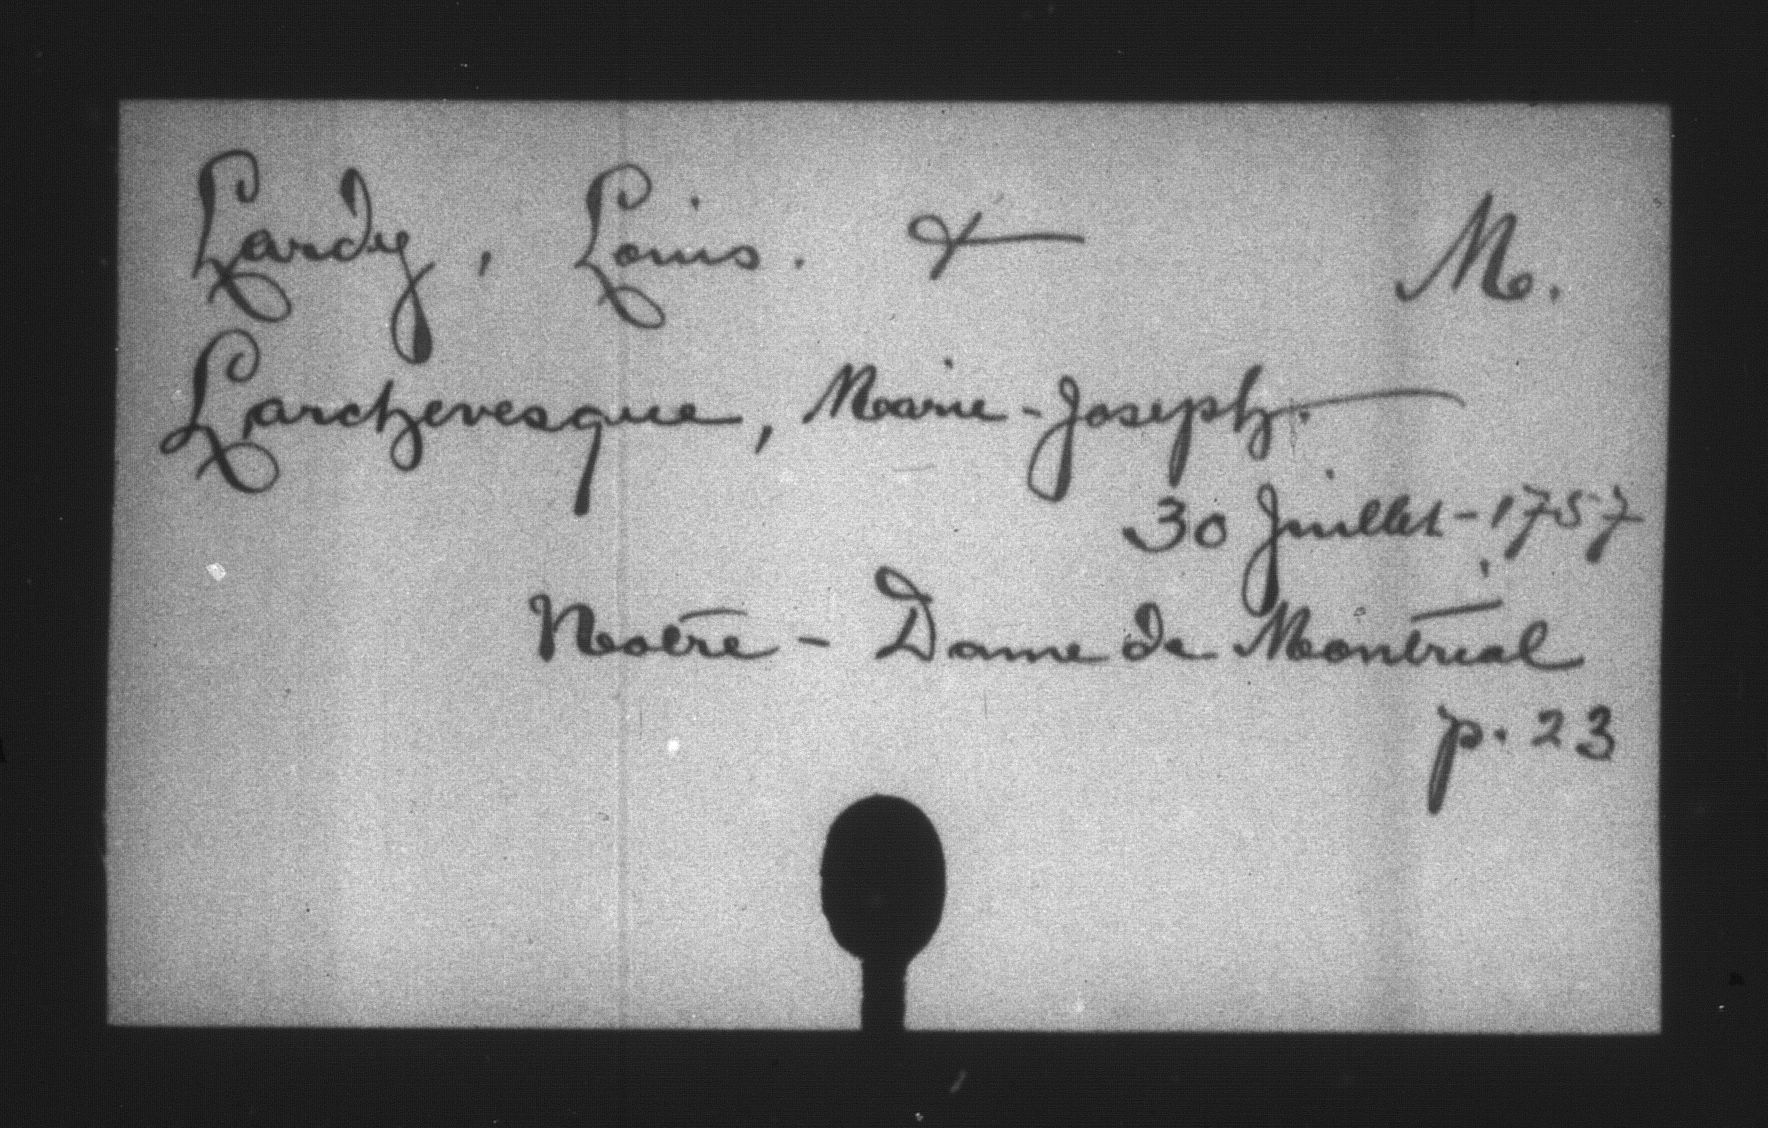 Lardy, Louis. & M.
Larchevesque, Marie-Joseph.
30 Juillet - 1757
Notre - Dame de Montréal
p. 23